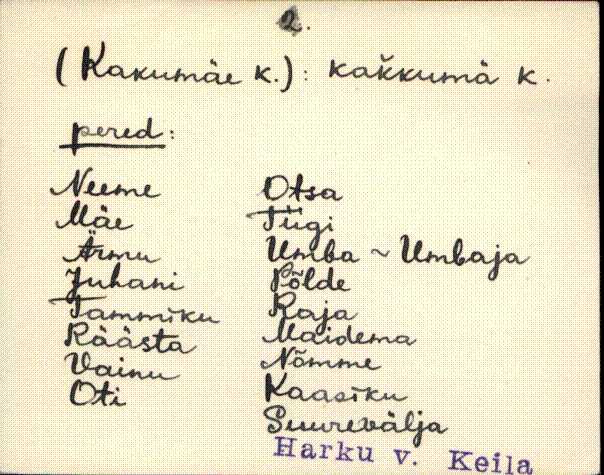 2.
(Kakumäe k.): kakkumä k.
pered:
Neeme
Mäe
Ärmu
Juhani
Tammiku
Räästa
Vainu
Oti
Otsa
Tiigi
Umba ~ Umbaja
Põlde
Raja
Maidema
Nõmme
Kaasiku
Suurevälja
Harku v. Keila